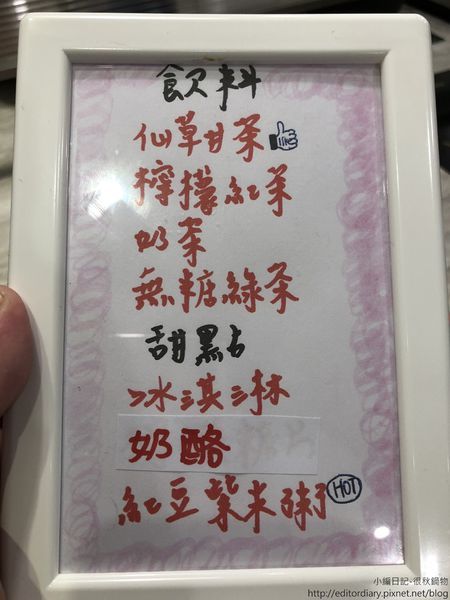 飲料
仙草甘茶 like
檸檬紅茶
奶茶
無糖綠茶
甜點
冰淇淋
奶酪
紅豆紫米粥 HOT
小編日記-很秋鍋物
http://editordiary.pixnet.net/blog